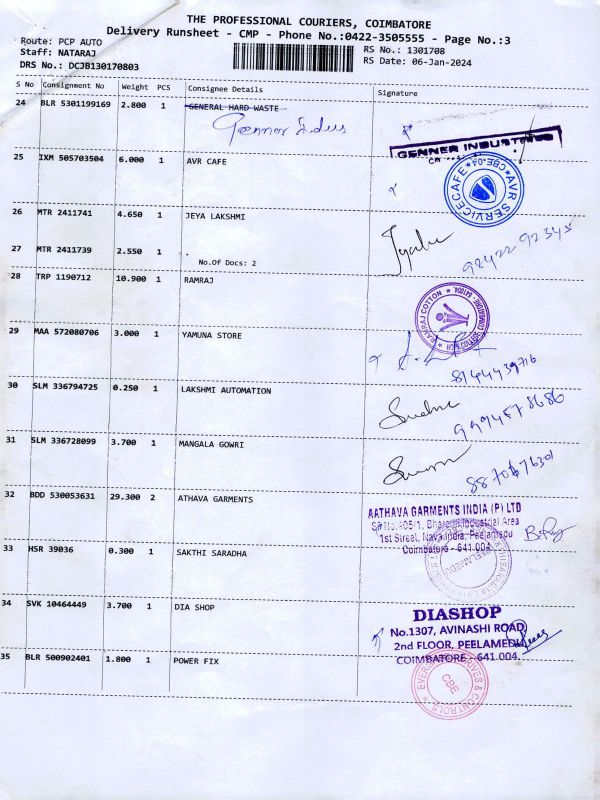 THE PROFESSIONAL COURIERS, COIMBATORE
Delivery Runsheet - CMP - Phone No.:0422-3505555 - Page No.:3
Route: PCP AUTO
RS No.: 1301708
Staff: NATARAJ
RS Date: 06-Jan-2024
DRS No.: DCJB130170803
S No Consignment No Weight PCS Consignee Details Signature
24 BLR 5301199169 2.800 1 GENERAL HARD WASTE
GENNER INDUSTRIES
25 IXM 505703504 6.000 1 AVR CAFE
AVR SERVICECAFE ★ CBE-04 ★
26 MTR 2411741 4.650 1 JEYA LAKSHMI
98422 92345
27 MTR 2411739 2.550 1 .
No.Of Docs: 2
28 TRP 1190712 10.900 1 RAMRAJ
RAMRAJ COTTON
29 MAA 572080706 3.000 1 YAMUNA STORE
30 SLM 336794725 0.250 1 LAKSHMI AUTOMATION
31 SLM 336728099 3.700 1 MANGALA GOWRI
32 BDD 530053631 29.300 2 ATHAVA GARMENTS
AATHAVA GARMENTS INDIA (P) LTD
1st Street, Nava India, Peelamedu
Coimbatore - 641 004
33 HSR 39036 0.300 1 SAKTHI SARADHA
34 SVK 10464449 3.700 1 DIA SHOP
DIASHOP
No.1307, AVINASHI ROAD,
2nd FLOOR, PEELAMEDU,
COIMBATORE - 641 004.
35 BLR 500902401 1.800 1 POWER FIX
CBE